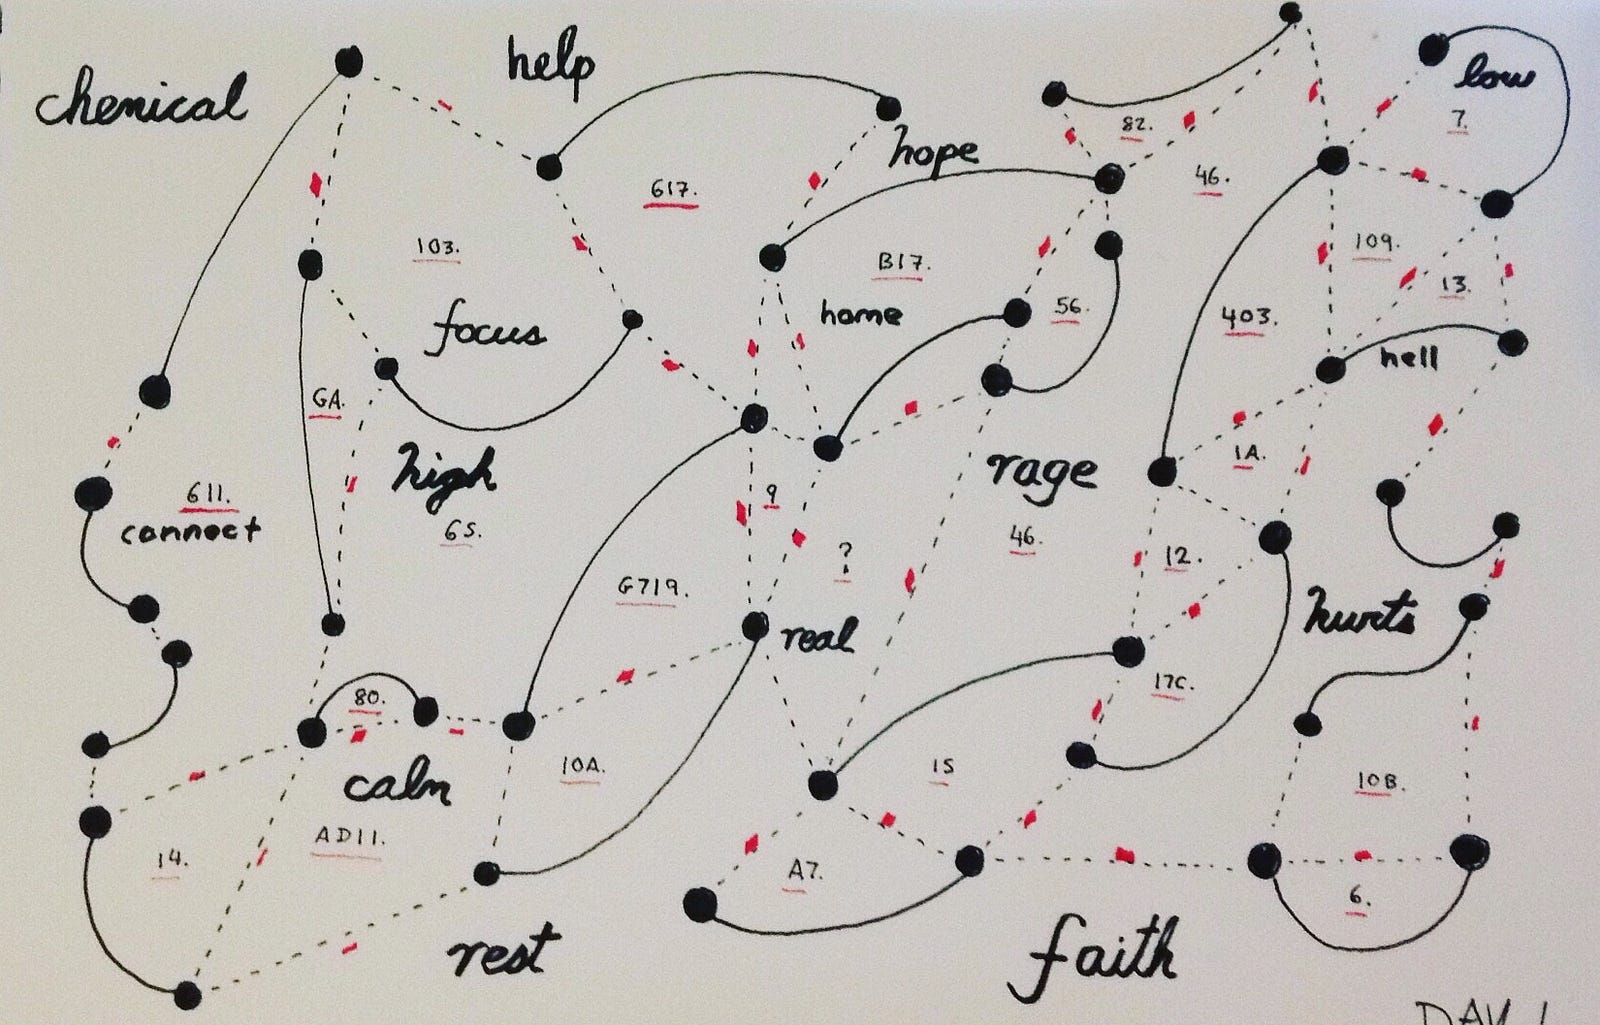 help
low
chemical
7.
82.
hope
46.
617.
103.
109.
B17.
13.
home
56.
403.
focus
hell
GA.
1A.
high
rage
611.
9
connect
6S.
46.
?
12.
G719.
hurts
real
17C.
80.
10A.
15
10B.
calm
AD11.
14.
A7.
6.
rest
faith
DAY 1